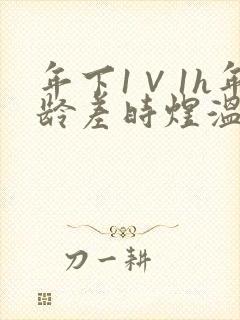 年下1V1h年
龄差时煌温
刀一耕